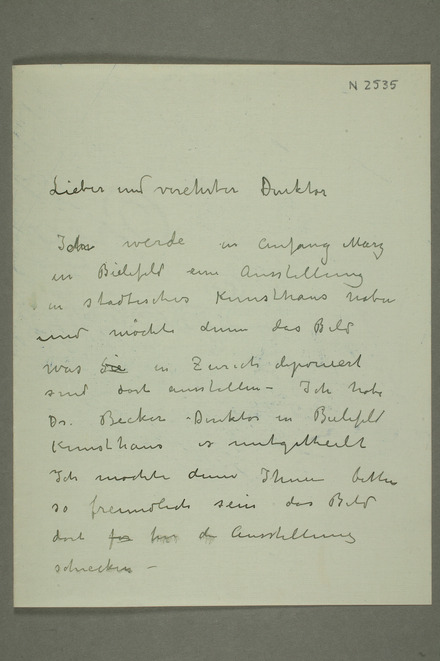 N 2535
Lieber und verehrter Direktor
Ich werde in Anfang März
in Bielefeld eine Ausstellung
in städtisches Kunsthaus haben
und möchte denn das Bild
was die in Zürich deponiert
sind dort ausstellen – Ich habe
Dr. Becker – Direktor in Bielefeld
Kunsthaus es mitgetheilt
Ich möchte denn Ihnen bitten
so freundlich sein das Bild
dort for hos die Ausstellung
schicken –